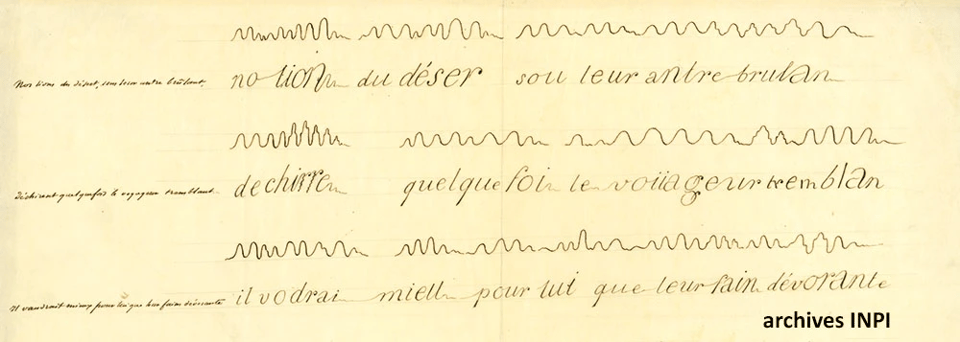 Nos lions du désert, sous leur antre brûlant,
no lion du déser sou leur antre brulan
déchirant quelquefois le voyageur tremblant
dechirre quelque foi le voiiageur tremblan
Il vaudrait mieux pour lui que leur faim dévorante
il vodrai miell pour lui que leur fain dévorante
archives INPI